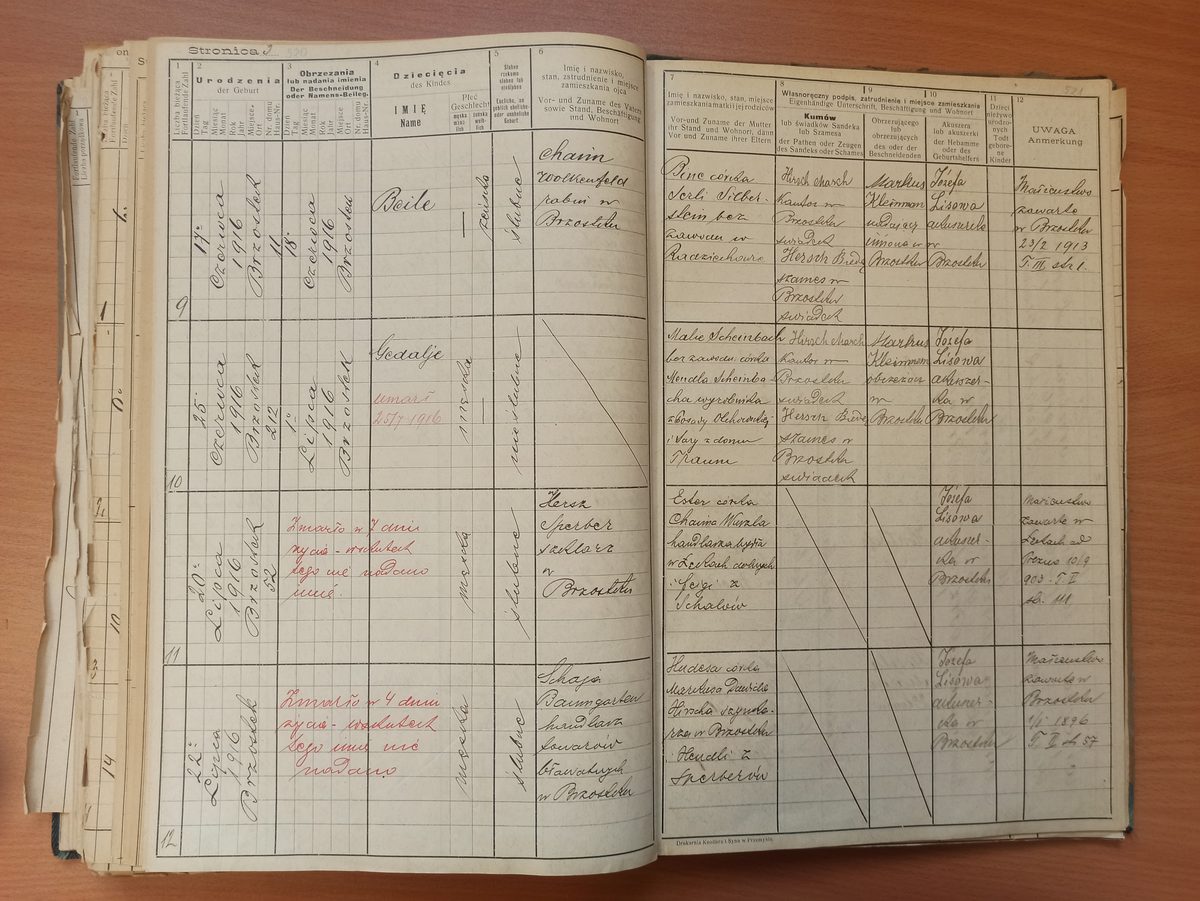 Stronica 3
1
Liczba bieżąca
Fortlaufende Zahl
2
Urodzenia
der Geburt
Dzień
Tag
Miesiąc
Monat
Rok
Jahr
Miejsce
Ort
Nr. domu
Haus-Nr.
3
Obrzezania
lub nadania imienia
Der Beschneidung
oder Namens-Beileg.
Dzień
Tag
Miesiąc
Monat
Rok
Jahr
Miejsce
Ort
Nr. domu
Haus-Nr.
4
Dziecięcia
des Kindes
IMIĘ
Name
Płeć
Geschlecht
męska
männlich
żeńska
weiblich
5
Ślubne
rzekomo
ślubne lub
nieślubne
6
Imię i nazwisko,
stan, zatrudnienie i miejsce
zamieszkania ojca
Vor- und Zuname des Vaters
sowie Stand, Beschäftigung
und Wohnort
7
Imię i nazwisko, stan, miejsce
zamieszkania matki i jej rodziców
Vor- und Zuname der Mutter,
ihr Stand und Wohnort, dann
Vor und Zuname ihrer Eltern
8
9
10
Własnoręczny podpis, zatrudnienie i miejsce zamieszkania
Eigenhändige Unterschrift, Beschäftigung und Wohnort
Kumów
lub świadków Sandeka
lub Szamesa
der Pathen oder Zeugen
des Sandeks oder Schames
Obrzezującego
lub
obrzezujących
des oder der
Beschneidenden
Akuszera
lub akuszerki
der Hebamme oder des
Geburtshelfers
11
Dzieci
nieżywo
urodzo-
nych
Todt
gebore-
ne
Kinder
12
UWAGA
Anmerkung
9
17
Czerwca
1916
Brzostek
11
18
Czerwca
1916
Brzostek
Beile
żeńska
ślubne
Chaim
Wolkenfeld
rabin w
Brzostku
Penc córka
Serli Silber-
stein bez
zawodu w
Radziechowie
Hirsch Marsch
Kantor w
Brzostku
świadek
Hersch
szames w
Brzostku
świadek
Markus
Kleinman
nadający
imiona w
Brzostku
Józefa
Lisowa
akuszerka
w
Brzostku
Małżeństwo
zawarte
w Brzostku
23/2 1913
T. III str 1.
10
25
Czerwca
1916
Brzostek
212
1
Lipca
1916
Brzostek
Gedalje
umarł
25/7 1916
męska
nieślubne
Malie Scheinbach
bez zawodu córka
Mendla Scheinba-
cha wyrobnika
z Posady Olchowskiej
i Sary z domu
Traum
Hirsch Marsch
Kantor w
Brzostku
świadek
Hersch
szames w
Brzostku
świadek
Markus
Kleinman
obrzezacz
w
Brzostku
Józefa
Lisowa
akuszer-
ka w
Brzostku
11
20
Lipca
1916
Brzostek
52
Zmarło w 7 dniu
życia - wskutek
tego nie nadano
imię.
męska
ślubne
Hersz
Sperber
szklarz
w
Brzostku
Ester córka
Chaima
handlarza bydła
w
i Feigi z
Schalów
Józefa
Lisowa
akuszer-
ka w
Brzostku
Małżeństwo
zawarte w
10/9
903. T II
str. 111
12
22
Lipca
1916
Brzostek
Zmarło w 4 dniu
życia - wskutek
tego imię nie
nadano
męska
ślubne
Schaja
Baumgarten
handlarz
towarów
bławatnych
w Brzostku
Hudesa córka
Markusa Dawida
Hirscha szynka-
rza w Brzostku
i Hendli z
Sperberów
Józefa
Lisowa
akuszer-
ka w
Brzostku
Małżeństwo
zawarte w
Brzostku
1/1 1896
T. II st 57
Drukarnia Knollera i Syna w Przemyślu.